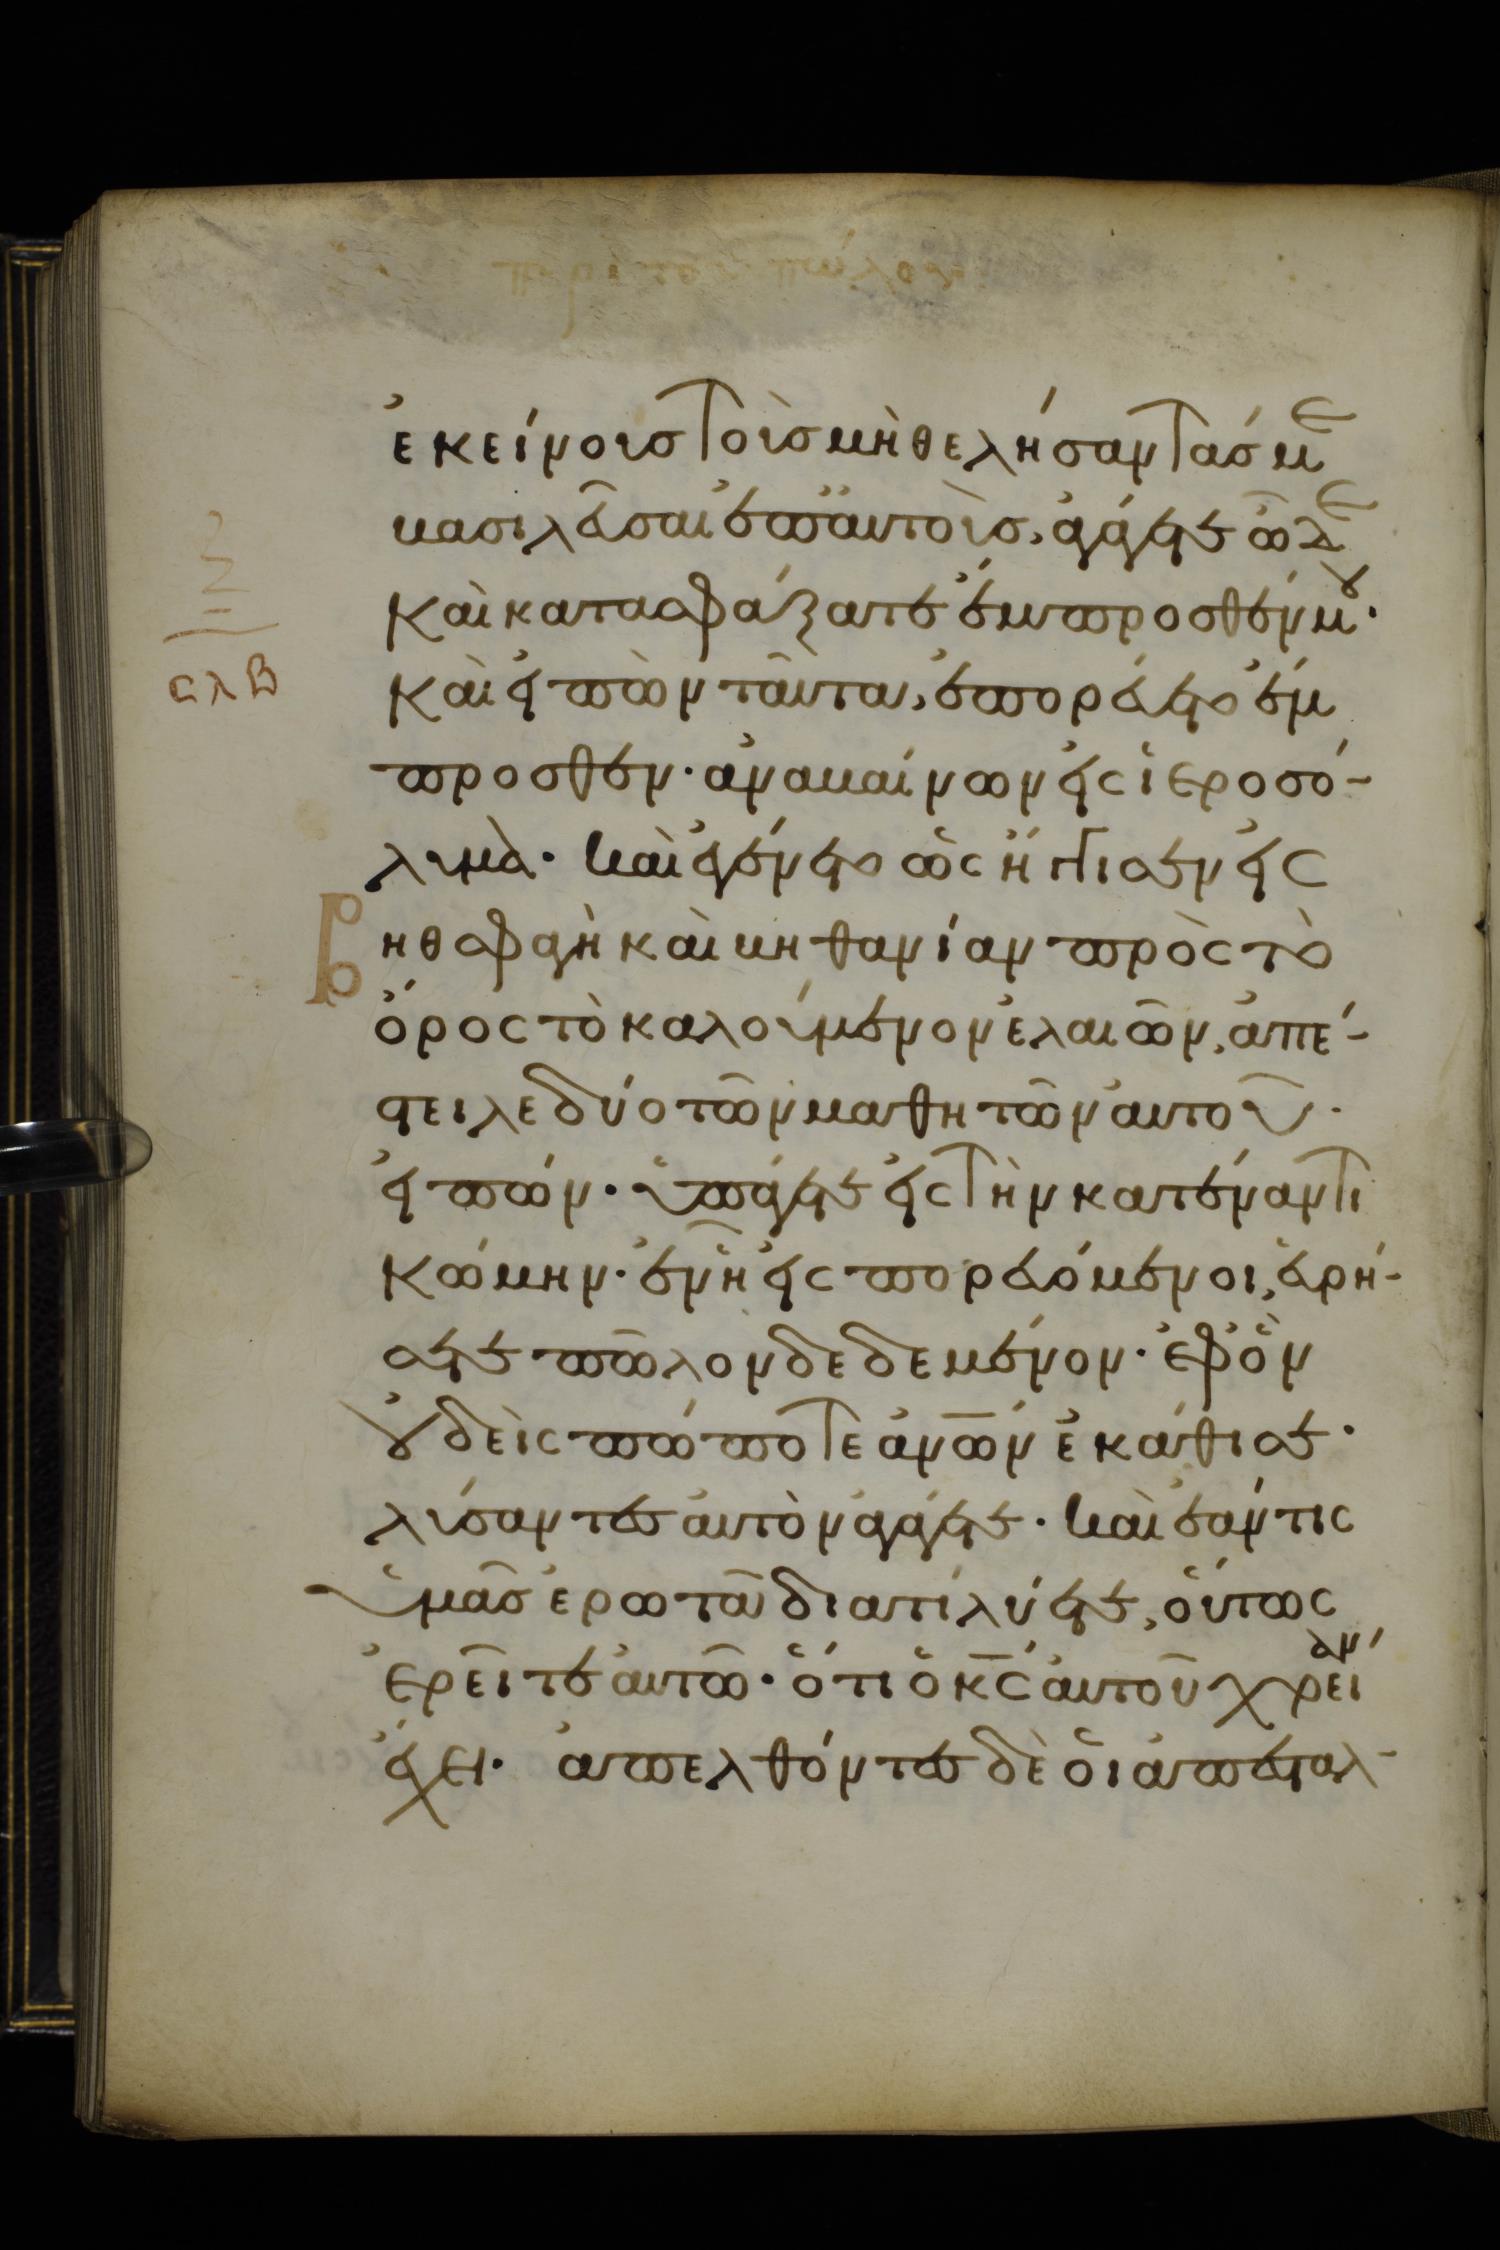 περι του πώλου
ἐκείνους τοὺς μὴ θελήσαντάς με
βασιλεῦσαι ἐπ' αὐτοὺς, ἀγάγετε ὧδε
Καὶ κατασφάξατε ἔμπροσθέν μου·
Καὶ εἰπὼν ταῦτα, ἐπορεύετο ἔμ
προσθεν· ἀναβαίνων εἰς ἱεροσό-
λυμα· καὶ ἐγένετο ὡς ἤγγισεν εἰς
σλβ
Βηθσφαγὴ καὶ βηθανίαν πρὸς τὸ
ὄρος τὸ καλούμενον ἐλαιῶν, ἀπέ-
στειλε δύο τῶν μαθητῶν αὐτοῦ·
εἰπών· ὑπάγετε εἰς τὴν κατέναντι
Κώμην· ἐν ἧ εἰς πορευόμενοι, εὑρή-
σετε πῶλον δεδεμένον· ἐφ' ὃν
οὐδεὶς πώποτε ἀνων ἐκάθισε·
λύσαντες αὐτὸν ἀγάγετε· καὶ ἐάν τις
ὑμᾶς ἐρωτᾶ διατί λύετε, οὕτως
ἐρεῖτε αὐτῶ· ὅτι ὁ κς αὐτοῦ χρείαν
ἔχει· ἀπελθόντες δὲ οἱ ἀπεσταλ-